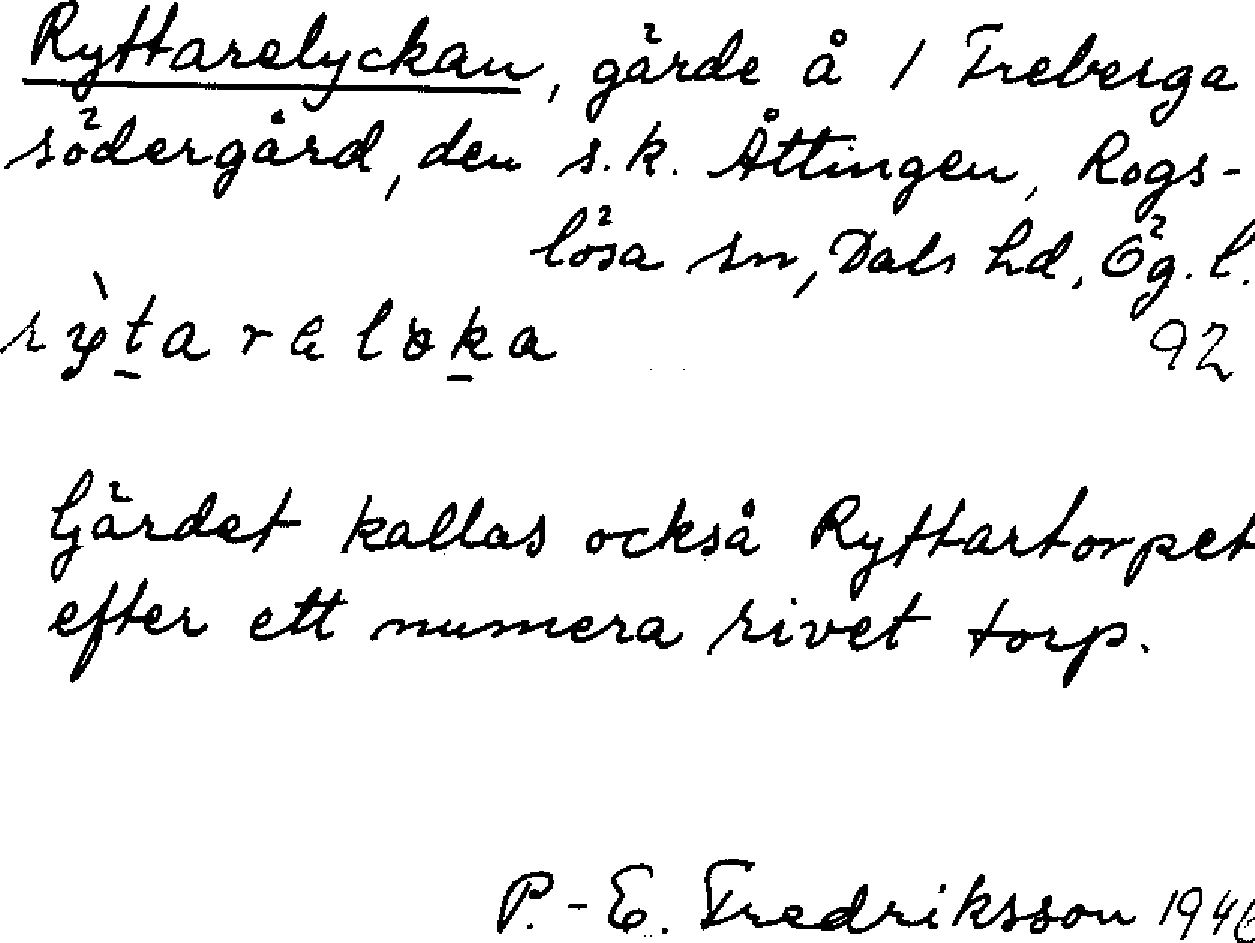 Ryttarelyckan, gärde å 1 Treberga
södergård, den s.k. Åttingen, Rogs-
lösa sn, Dals hd, Ög. l.
92
Gärdet kallas också Ryttartorpet
efter ett numera rivet torp.
P.-E. Fredriksson 1946